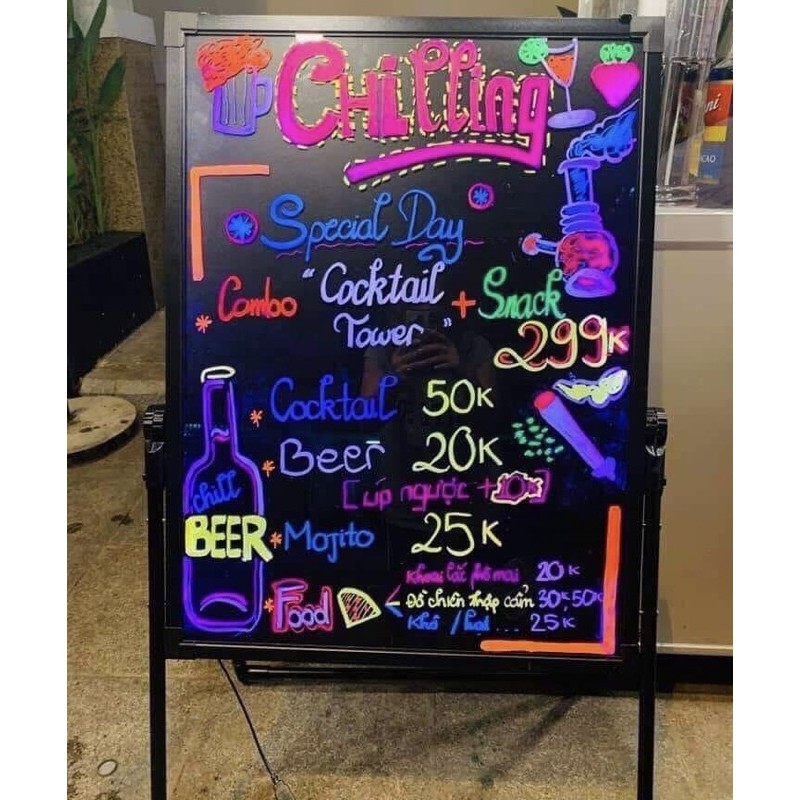 Chilling
Special Day
* Combo "Cocktail + Snack
Tower" 299K
* Cocktail 50K
* Beer 20K
[úp ngược + 10K]
* Mojito 25K
chill
BEER
* Food
Khoai lắc phô mai 20K
Đồ chiên thập cẩm 30K, 50K
Khô / ... 25K
CAO